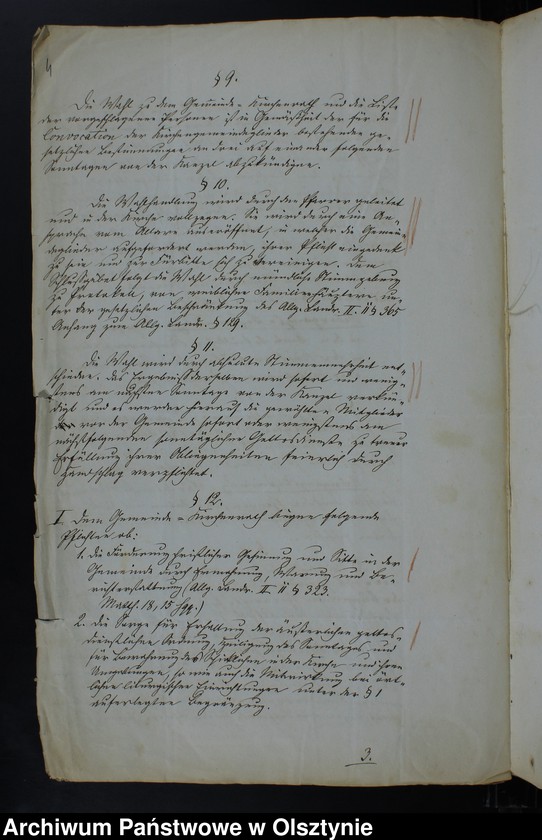 4
§ 9.
Die Wahl zu dem Gemeinde-Kirchenrath und die Liste
der vorgeschlagenen Personen ist in Gemäßheit der für die
Convocation der Kirchengemeindeglieder bestehenden ge-
setzlichen Bestimmungen an drei auf einander folgenden
Sonntagen von der Kanzel abzukündigen.
§ 10.
Die Wahlhandlung wird durch den Pfarrer geleitet
und in der Kirche vollzogen. Sie wird durch eine An-
sprache vom Altare aus eröffnet, in welcher die Gemein-
deglieder aufgefordert werden, ihrer Pflicht eingedenk
zu sein und zur Fürbitte sich zu vereinigen. Dem
Schlußgebet folgt die Wahl durch mündliche Stimmgebung
zu Protokoll, von weiblichen Familienhäuptern un-
ter der gesetzlichen Beschränkung des Allg. Landr. II. 11 § 365
Anhang zum Allg. Landr. § 129.
§ 11.
Die Wahl wird durch absolute Stimmenmehrheit ent-
schieden. Das Ergebniß derselben wird sofort und wenig-
stens am nächsten Sonntage von der Kanzel verkün-
digt und es werden hierauf die gewählten Mitglieder
vor der Gemeinde sofort oder wenigstens am
nächstfolgenden sonntäglichen Gottesdienste zu treuer
Erfüllung ihrer Obliegenheiten feierlich durch
Handschlag verpflichtet.
§ 12.
I Dem Gemeinde-Kirchenrath liegen folgende
Pflichten ob:
1. die Förderung christlicher Gesinnung und Sitte in der
Gemeinde durch Ermahnung, Warnung und Be-
richterstattung (Allg. Landr. II. 11 § 323.
Matth. 18, 15 sqq.)
2. Die Sorge für Erhaltung der äußerlichen gottes-
dienstlichen Ordnung, Heiligung des Sonntages und
für Bewahrung des Schicklichen in der Kirche und ihren
Umgebungen, so wie auch die Mitwirkung bei ört-
lichen liturgischen Einrichtungen unter der § 1
auferlegten Begränzung.
3.
Archiwum Państwowe w Olsztynie